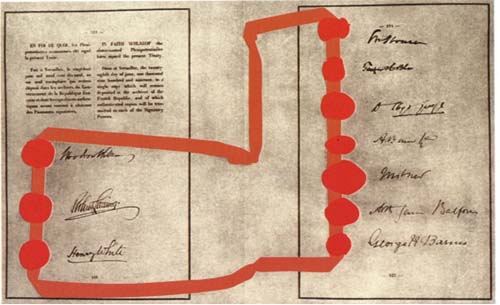 EN FOI DE QUOI, les Pléni-
potentiaires susnommés ont signé
le présent Traité.
Fait à Versailles, le vingt-huit
juin mil neuf cent dix-neuf, en
un seul exemplaire qui restera
déposé dans les archives du Gou-
vernement de la République fran-
çaise et dont les expéditions authen-
tiques seront remises à chacune
des Puissances signataires.
IN FAITH WHEREOF the
above-named Plenipotentiaries
have signed the present Treaty.
Done at Versailles, the twenty-
eighth day of June, one thousand
nine hundred and nineteen, in a
single copy which will remain
deposited in the archives of the
French Republic, and of which
authenticated copies will be trans-
mitted to each of the Signatory
Powers.
Woodrow Wilson
Henry White
D Lloyd George
Milner
Arth James Balfour
George N Barnes